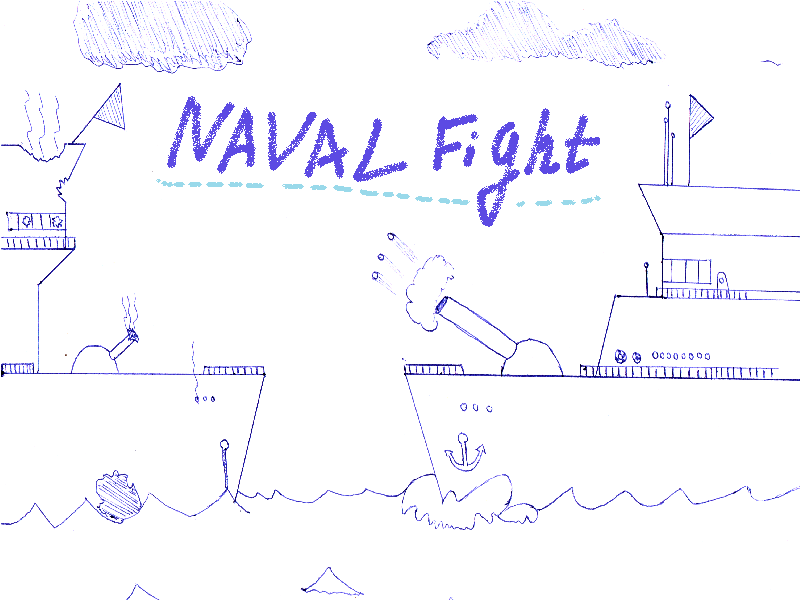 NAVAL Fight